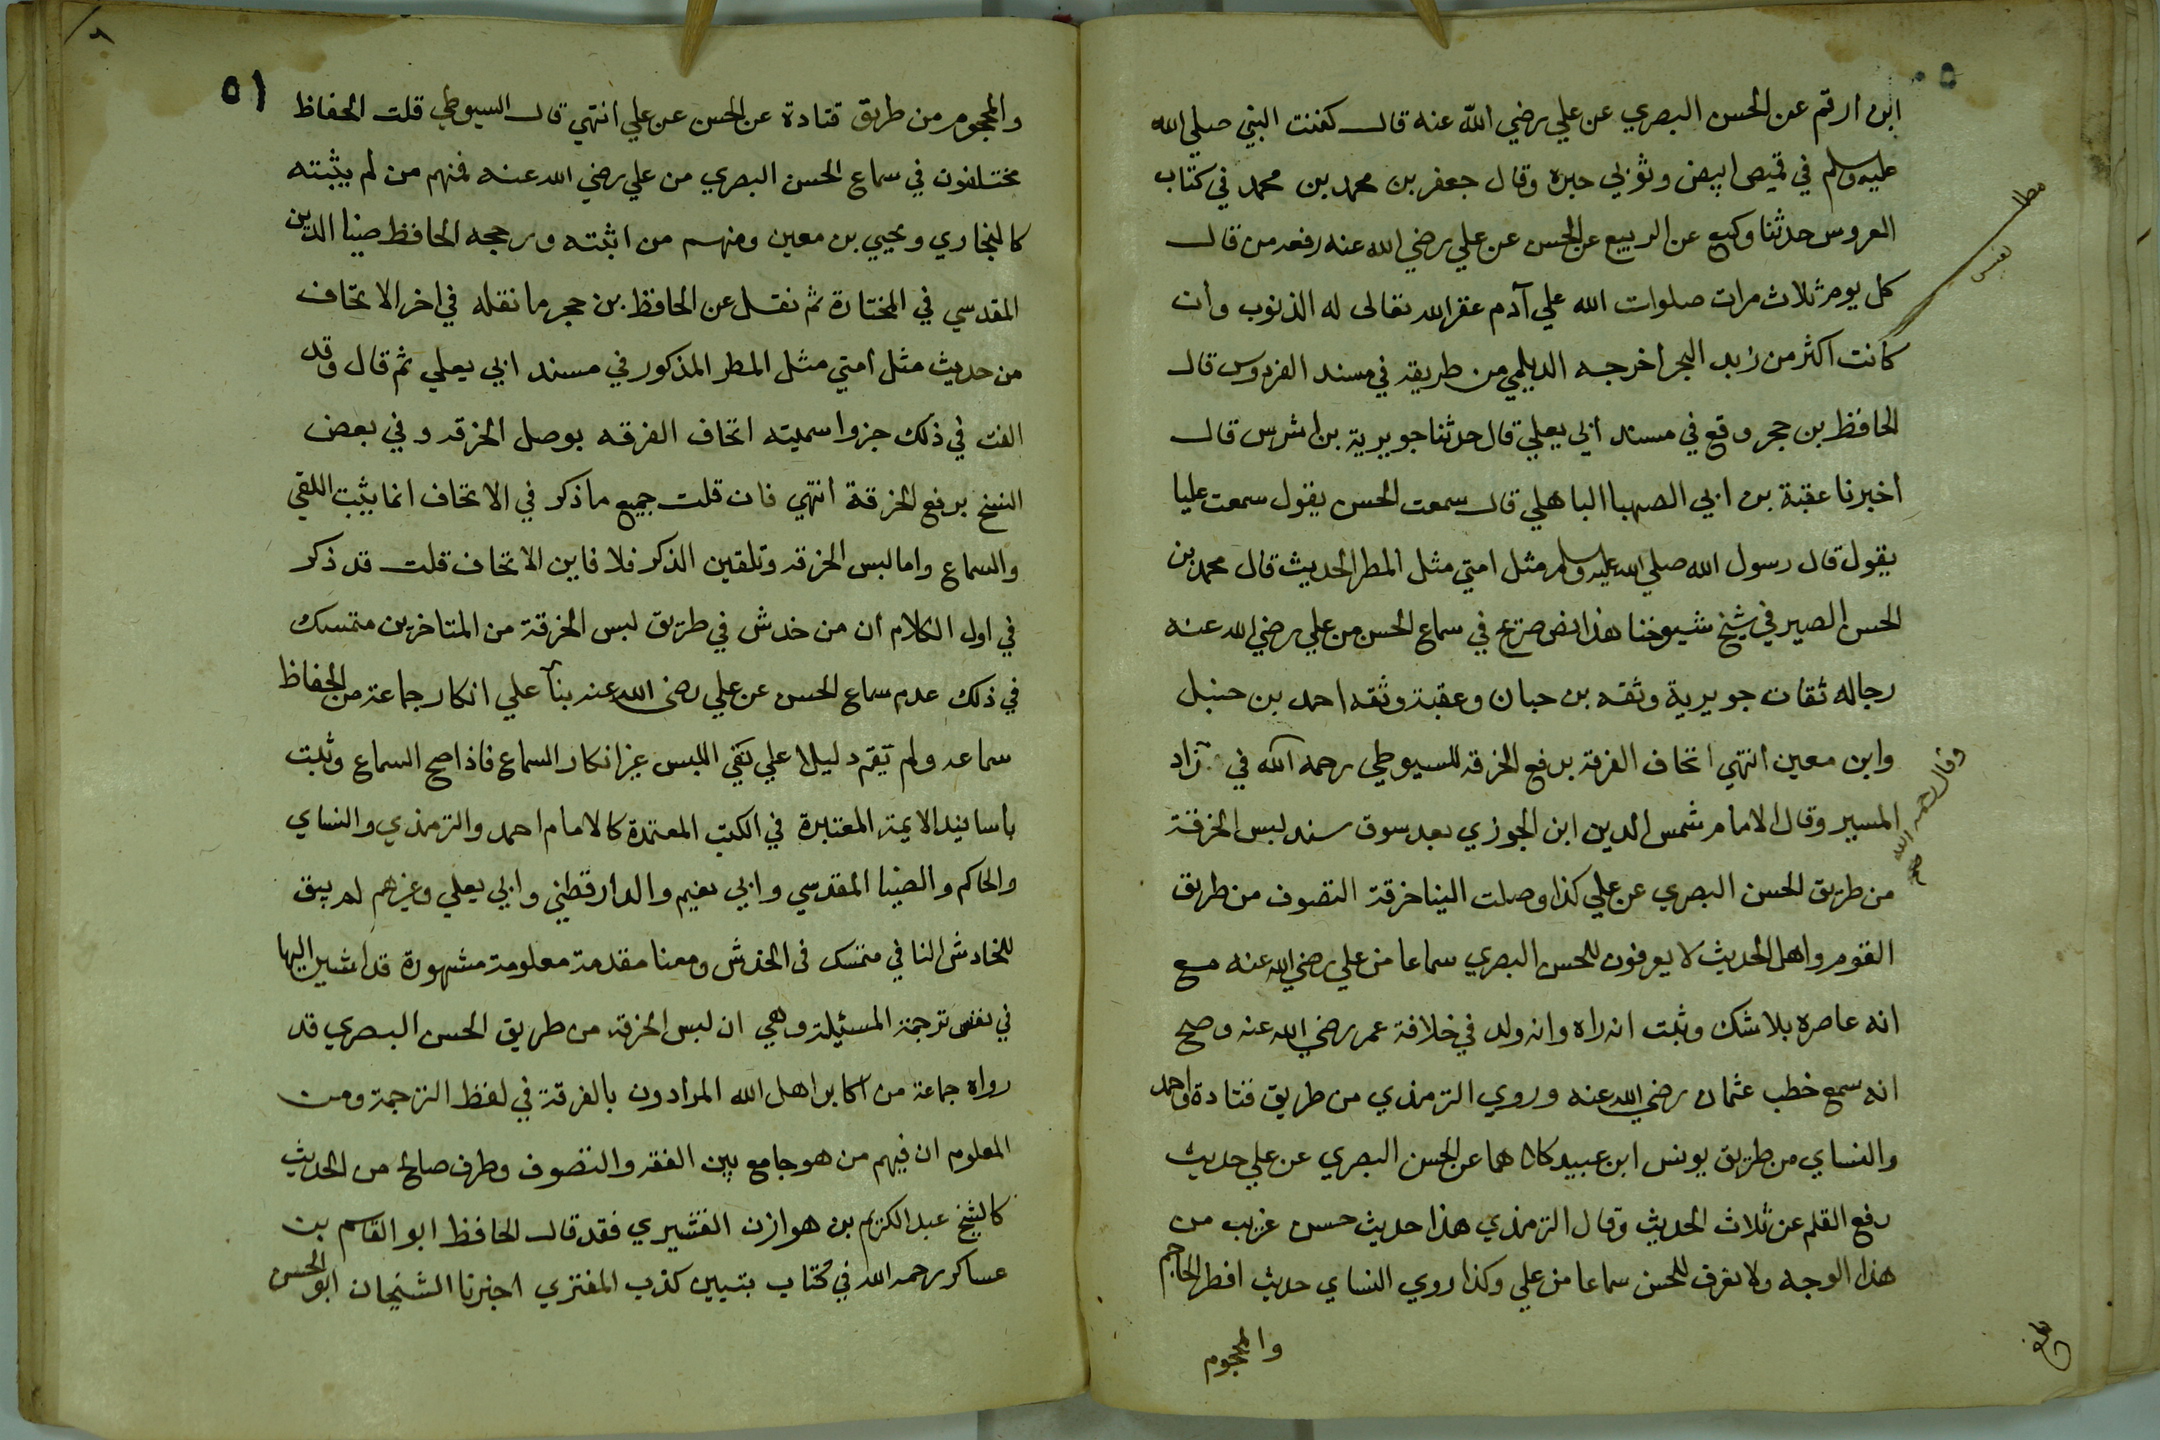 ٥٠
ابن ارقم عن الحسن البصري عن علي رضي الله عنه قال كفنت النبي صلي الله
عليه وسلم في قميص ابيض وثوبي حبرة وقال جعفر بن محمد بن محمد في كتاب
العروس حدثنا وكيع عن الربيع عن الحسن عن علي رضي الله عنه رفعه من قال
كل يوم ثلاث مرات صلوات الله علي آدم غفر الله تعالى له الذنوب وان
كانت اكثر من زبد البحر اخرجه الديلمي من طريقه في مسند الفردوس قال
الحافظ بن حجر وقع في مسند ابي يعلي قال حدثنا جويرية بن اشرس قال
اخبرنا عقبة بن ابي الصهبا الباهلي قال سمعت الحسن يقول سمعت عليا
يقول قال رسول الله صلي الله عليه وسلم مثل امتي مثل المطر الحديث قال محمد بن
الحسن الصيرفي شيخ شيوخنا هذا نص صريح في سماع الحسن من علي رضي الله عنه
رجاله ثقات جويرية وثقه بن حبان وعقبة وثقه احمد بن حنبل
وابن معين انتهي اتحاف الفرقة برفع الخرقه للسيوطي رحمه الله في زاد
المسير وقال الامام شمس الدين ابن الجوزي بعد سوق سند لبس الخرقة
من طريق الحسن البصري عن علي كذا وصلت الينا خرقة التصوف من طريق
القوم واهل الحديث لا يعرفون للحسن البصري سماعا من علي رضي الله عنه مع
انه عاصره بلا شك وثبت انه راه وانه ولد في خلافة عمر رضي الله عنه وصح
انه سمع خطب عثمان رضي الله عنه وروي الترمذي من طريق قتادة واحمد
والنساي من طريق يونس ابن عبيد كلاهما عن الحسن البصري عن علي حديث
رفع القلم عن ثلاث الحديث وقال الترمذي هذا حديث حسن غريب من
هذا الوجه ولا نعرف للحسن سماعا من علي وكذا روي النساي حديث افطر الحاجم
والمحجوم
وقال رحمه الله
صح
٥١
والمحجوم من طريق قتادة عن الحسن عن علي انتهي قال السيوطي قلت الحفاظ
مختلفون في سماع الحسن البصري من علي رضي الله عنه فمنهم من لم يثبته
كالبخاري ويحيي بن معين ومنهم من اثبته ورجحه الحافظ ضيا الدين
المقدسي في المختارة ثم نقل عن الحافظ بن حجر ما نقله في اخر الاتحاف
من حديث مثل امتي مثل المطر المذكور في مسند ابي يعلي ثم قال وقد
الفت في ذلك جزوا سميته اتحاف الفرقه بوصل الخرقه وفي بعض
النسخ برفع الخرقة انتهي فان قلت جميع ما ذكر في الاتحاف انما يثبت اللقي
والسماع واما لبس الخرقه وتلقين الذكر فلا فاين الاتحاف قلت قد ذكر
في اول الكلام ان من خدش في طريق لبس الخرقة من المتاخرين متمسك
في ذلك عدم سماع الحسن عن علي رضي الله عنه بنآ علي انكار جماعة من الحفاظ
سماعه ولم يقم دليلا علي نفي اللبس غير انكار السماع فاذا صح السماع وثبت
باسانيد الايمة المعتبرة في الكتب المعتمدة كالامام احمد والترمذي والنساي
والحاكم والضيا المقدسي وابي نعيم والدارقطني وابي يعلي وغيرهم لم يبق
للخادش النافي متمسك في الخدش ومعنا مقدمة معلومة مشهورة قد اشير اليها
في نفس ترجمة المسئيلة وهي ان لبس الخرقه من طريق الحسن البصري قد
رواه جماعة من اكابر اهل الله المرادون بالفرقة في لفظ الترجمة ومن
المعلوم ان فيهم من هو جامع بين الفقر والتصوف وطرف صالح من الحديث
كالشيخ عبد الكريم بن هوازن القشيري فقد قال الحافظ ابو القاسم بن
عساكر رحمه الله في كتاب تبيين كذب المفتري اخبرنا الشيخان ابو الحسن